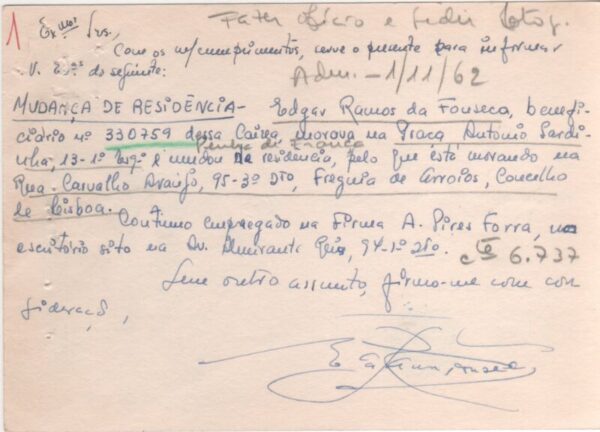 1
Fazer Ofício e pedir fotog.
Ex.mos Srs,
Com os m/cumprimentos, serve o presente para informar
V. Ex.as do seguinte:
Adm. - 1/11/62
MUDANÇA DE RESIDÊNCIA - Edgar Ramos da Fonseca, benefi-
ciário nº 330759 dessa Caixa, morava na Praça António Sardi-
Penha de França
nha, 13-1º Esqº e mudou de residência, pelo que está morando na
Rua Carvalho Araújo, 95-3º Dto, Freguia de Arroios, Concelho
de Lisboa.
Continuo empregado na firma A. Pires Forra, no
escritório sito na Av. Almirante Reis, 94-1º Dto.
6.737
Sem outro assunto, firmo-me com con
sideração,